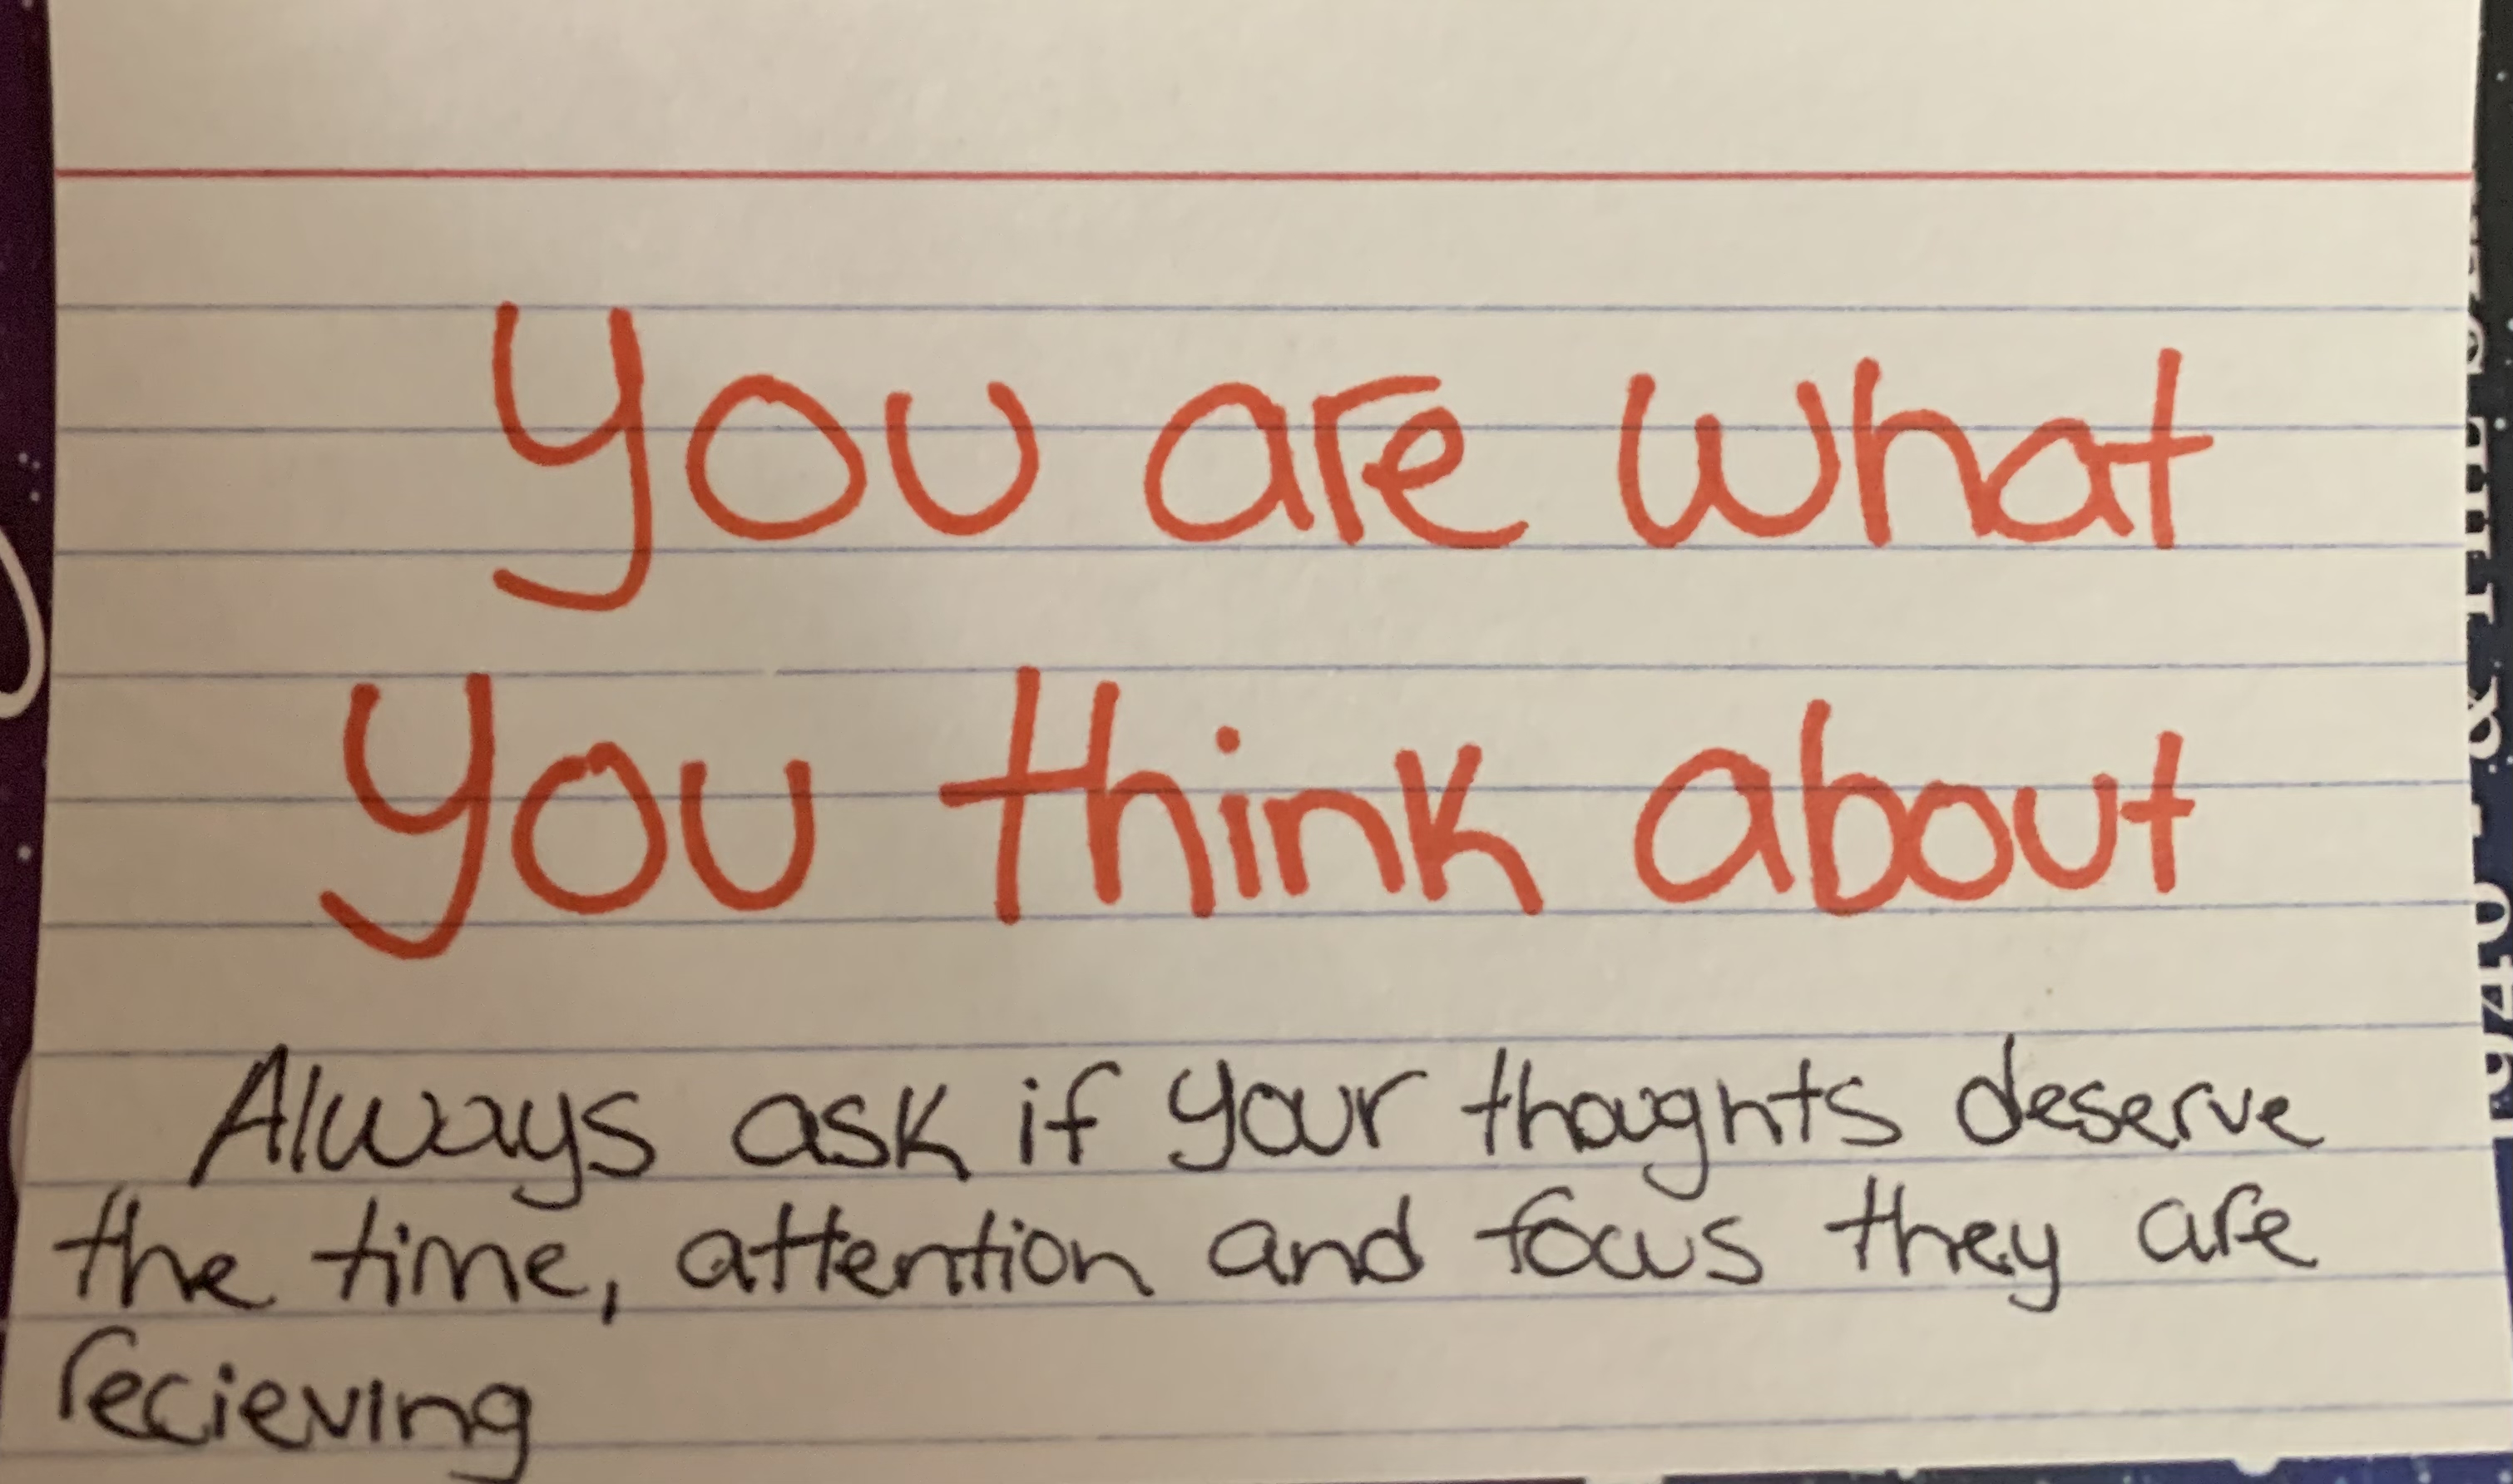 you are what
you think about
Always ask if your thoughts deserve
the time, attention and focus they are
recieving